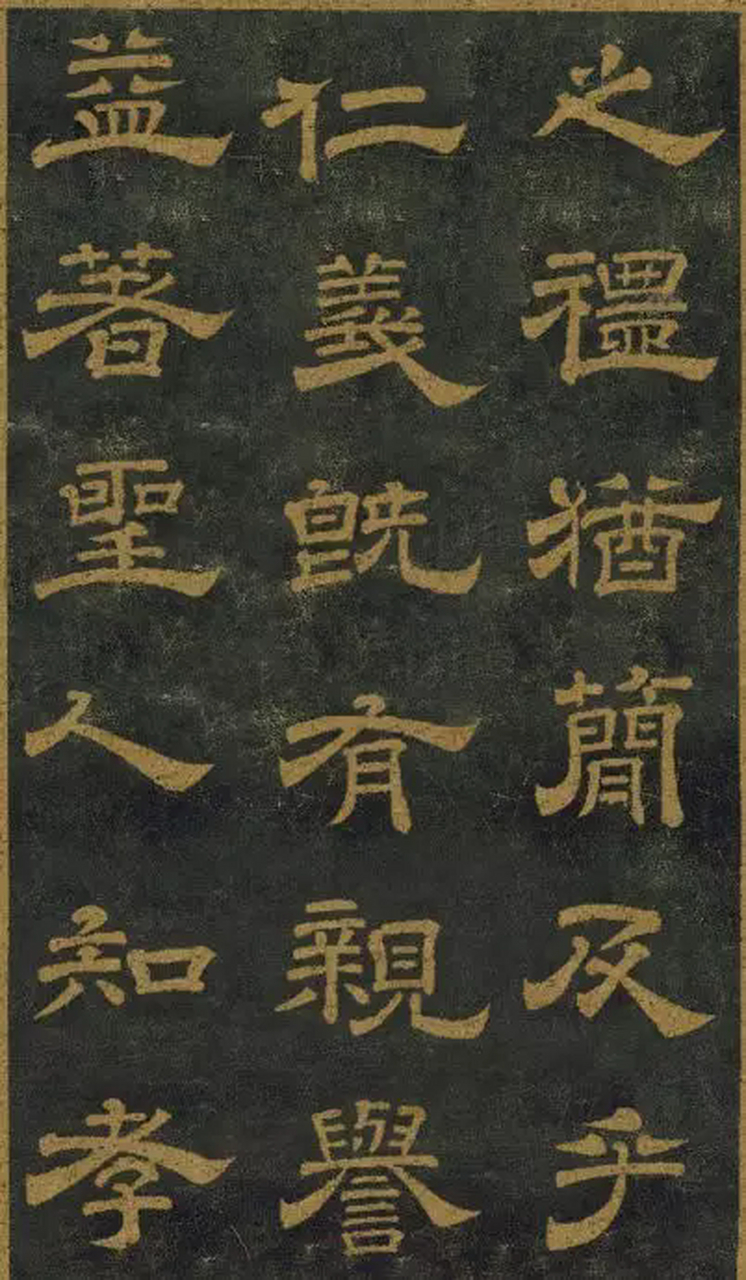 之禮猶簡及乎
仁義既有親譽
益著聖人知孝